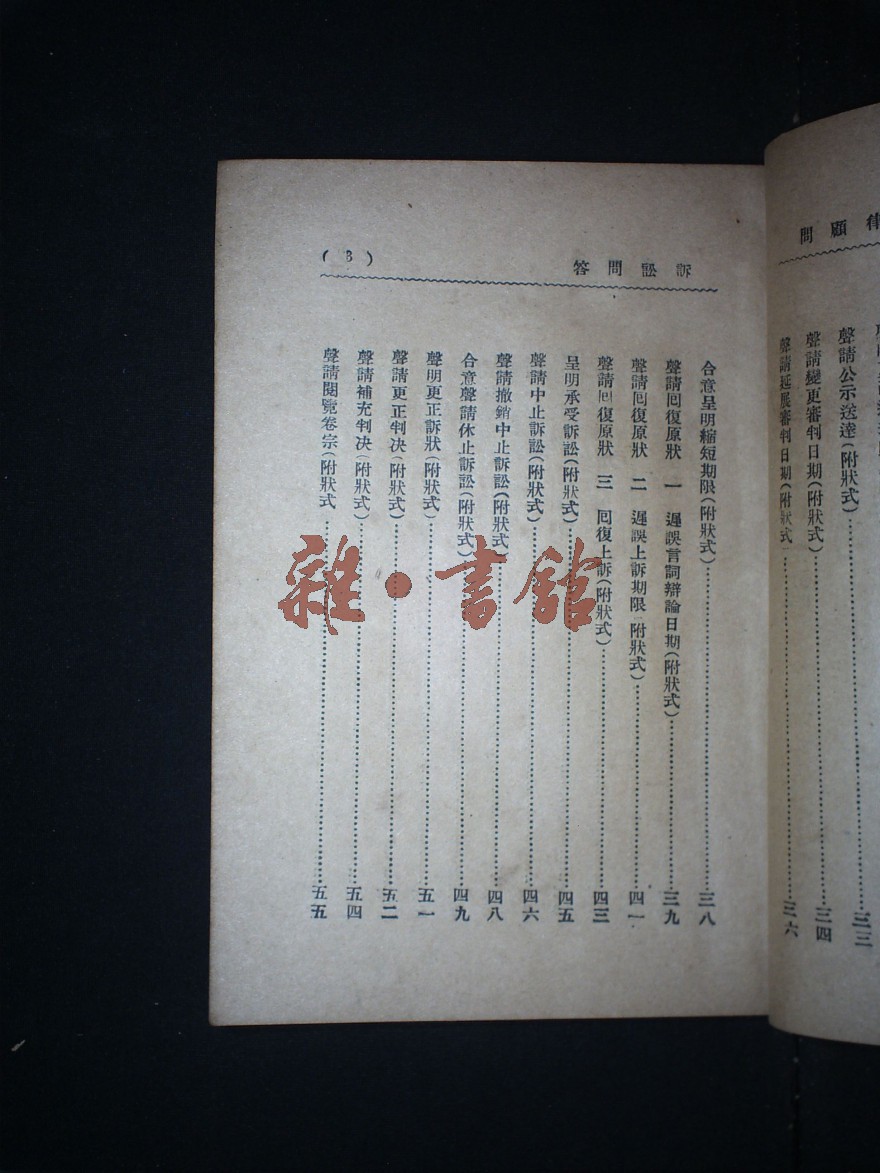 律顧問
聲請公示送達(附狀式)…三三
聲請變更審判日期(附狀式)…三四
聲請延展審判日期(附狀式)…三六
訴訟問答
(3)
合意呈明縮短期限(附狀式)…三八
聲請囘復原狀 一 遲誤言詞辯論日期(附狀式)…三九
聲請囘復原狀 二 遲誤上訴期限(附狀式)…四一
聲請囘復原狀 三 囘復上訴(附狀式)…四三
呈明承受訴訟(附狀式)…四五
聲請中止訴訟(附狀式)…四六
聲請撤銷中止訴訟(附狀式)…四八
合意聲請休止訴訟(附狀式)…四九
聲明更正訴狀(附狀式)…五一
聲請更正判决(附狀式)…五二
聲請補充判决(附狀式)…五四
聲請閱覽卷宗(附狀式…五五
雜·書館